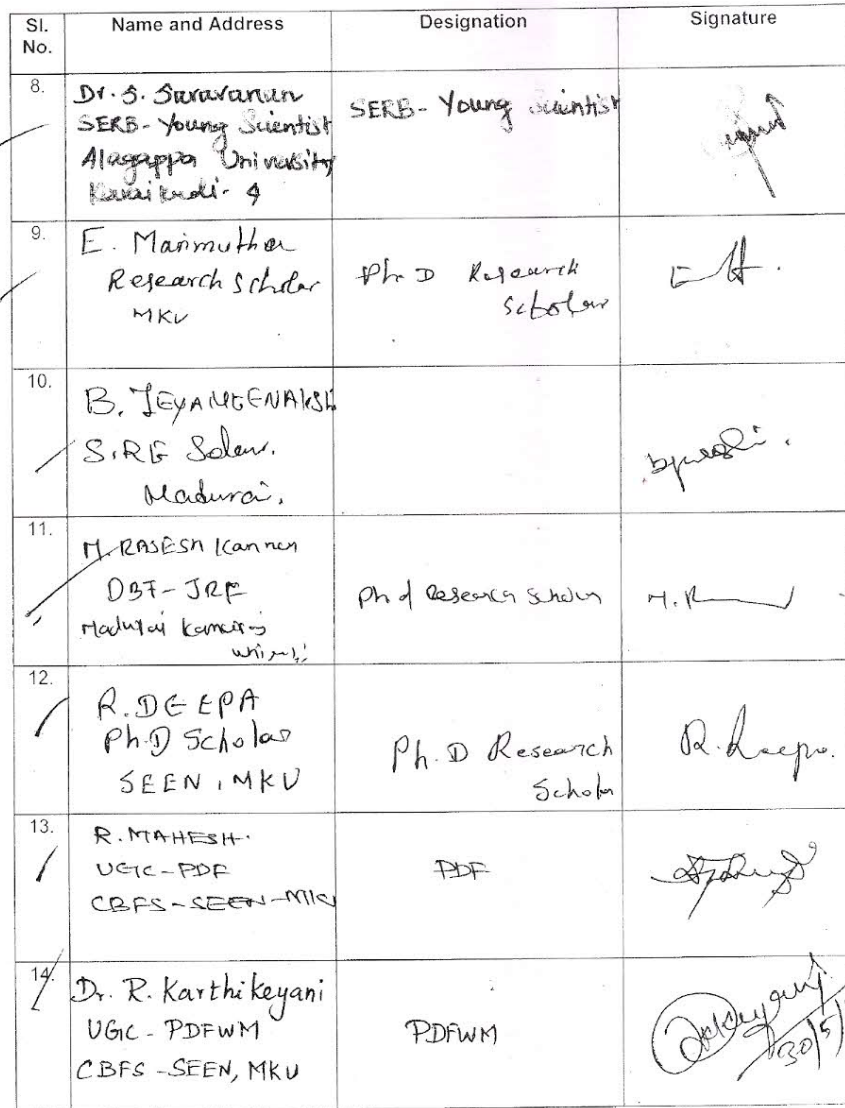 Sl. No.
Name and Address
Designation
Signature
8.
Dr. S. Saravanan
SERB- Young Scientist
Alagappa University
Karaikudi- 4
SERB- Young Scientist
9.
E. Marimuthu
Research Scholar
MKU
Ph. D Research
Scholar
10.
B. JEYAMEENAKSHI
Madurai,
11.
M. RAJESH Kannan
DBT-JRF
Madurai Kamaraj
Ph d Research Scholar
M. R
12.
R. DEEPA
Ph.D Scholar
SEEN, MKU
Ph. D Research
Scholar
R. Deepa.
13.
R. MAHESH.
UGC-PDF
CBFS-SEEN-MKU
PDF
14.
Dr. R. Karthikeyani
UGC - PDFWM
CBFS -SEEN, MKU
PDFWM
30/5/